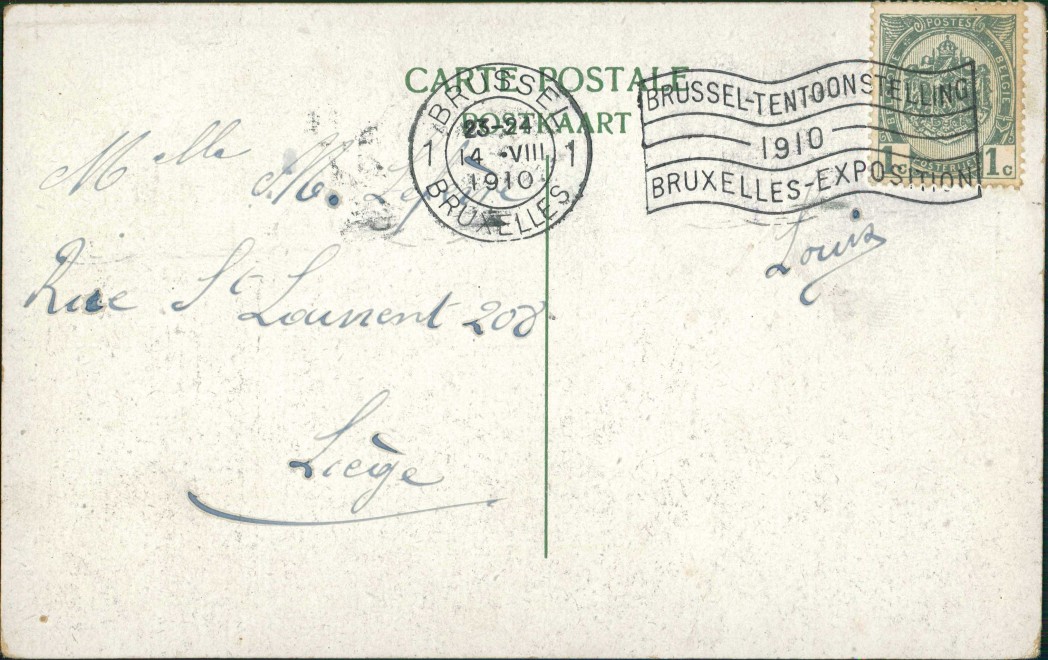 CARTE POSTALE
POSTKAART
BRUSSEL
23-24
1 14 •VIII 1
1910
BRUXELLES
BRUSSEL-TENTOONSTELLING
1910
BRUXELLES-EXPOSITION
POSTES
BELGIË
1c 1c
POSTERIJEN
Melle M.
Rue St Laurent 208
Liège
Louis